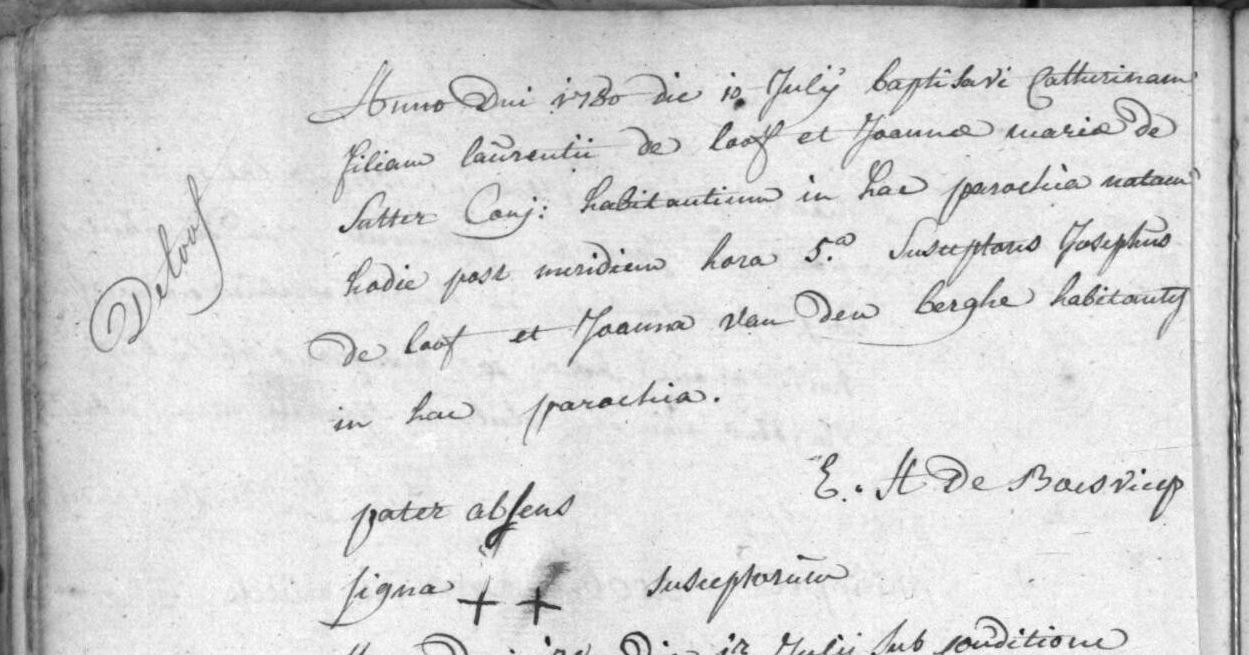 Deloof
Anno Dni 1780 die 10 Julÿ baptisavi Catturinam
filiam laŭrentii de loof et Joannæ mariæ de
Satter Conj: habitantium in hac parochia natam
hodie post meridiem hora 5.ª Susceptores Josephŭs
de loof et Joanna van den berghe habitantes
in hac parochia.
E. A De
pater absens
signa ++ susceptorŭm
Anno Dni Die 12 Julii sub conditione